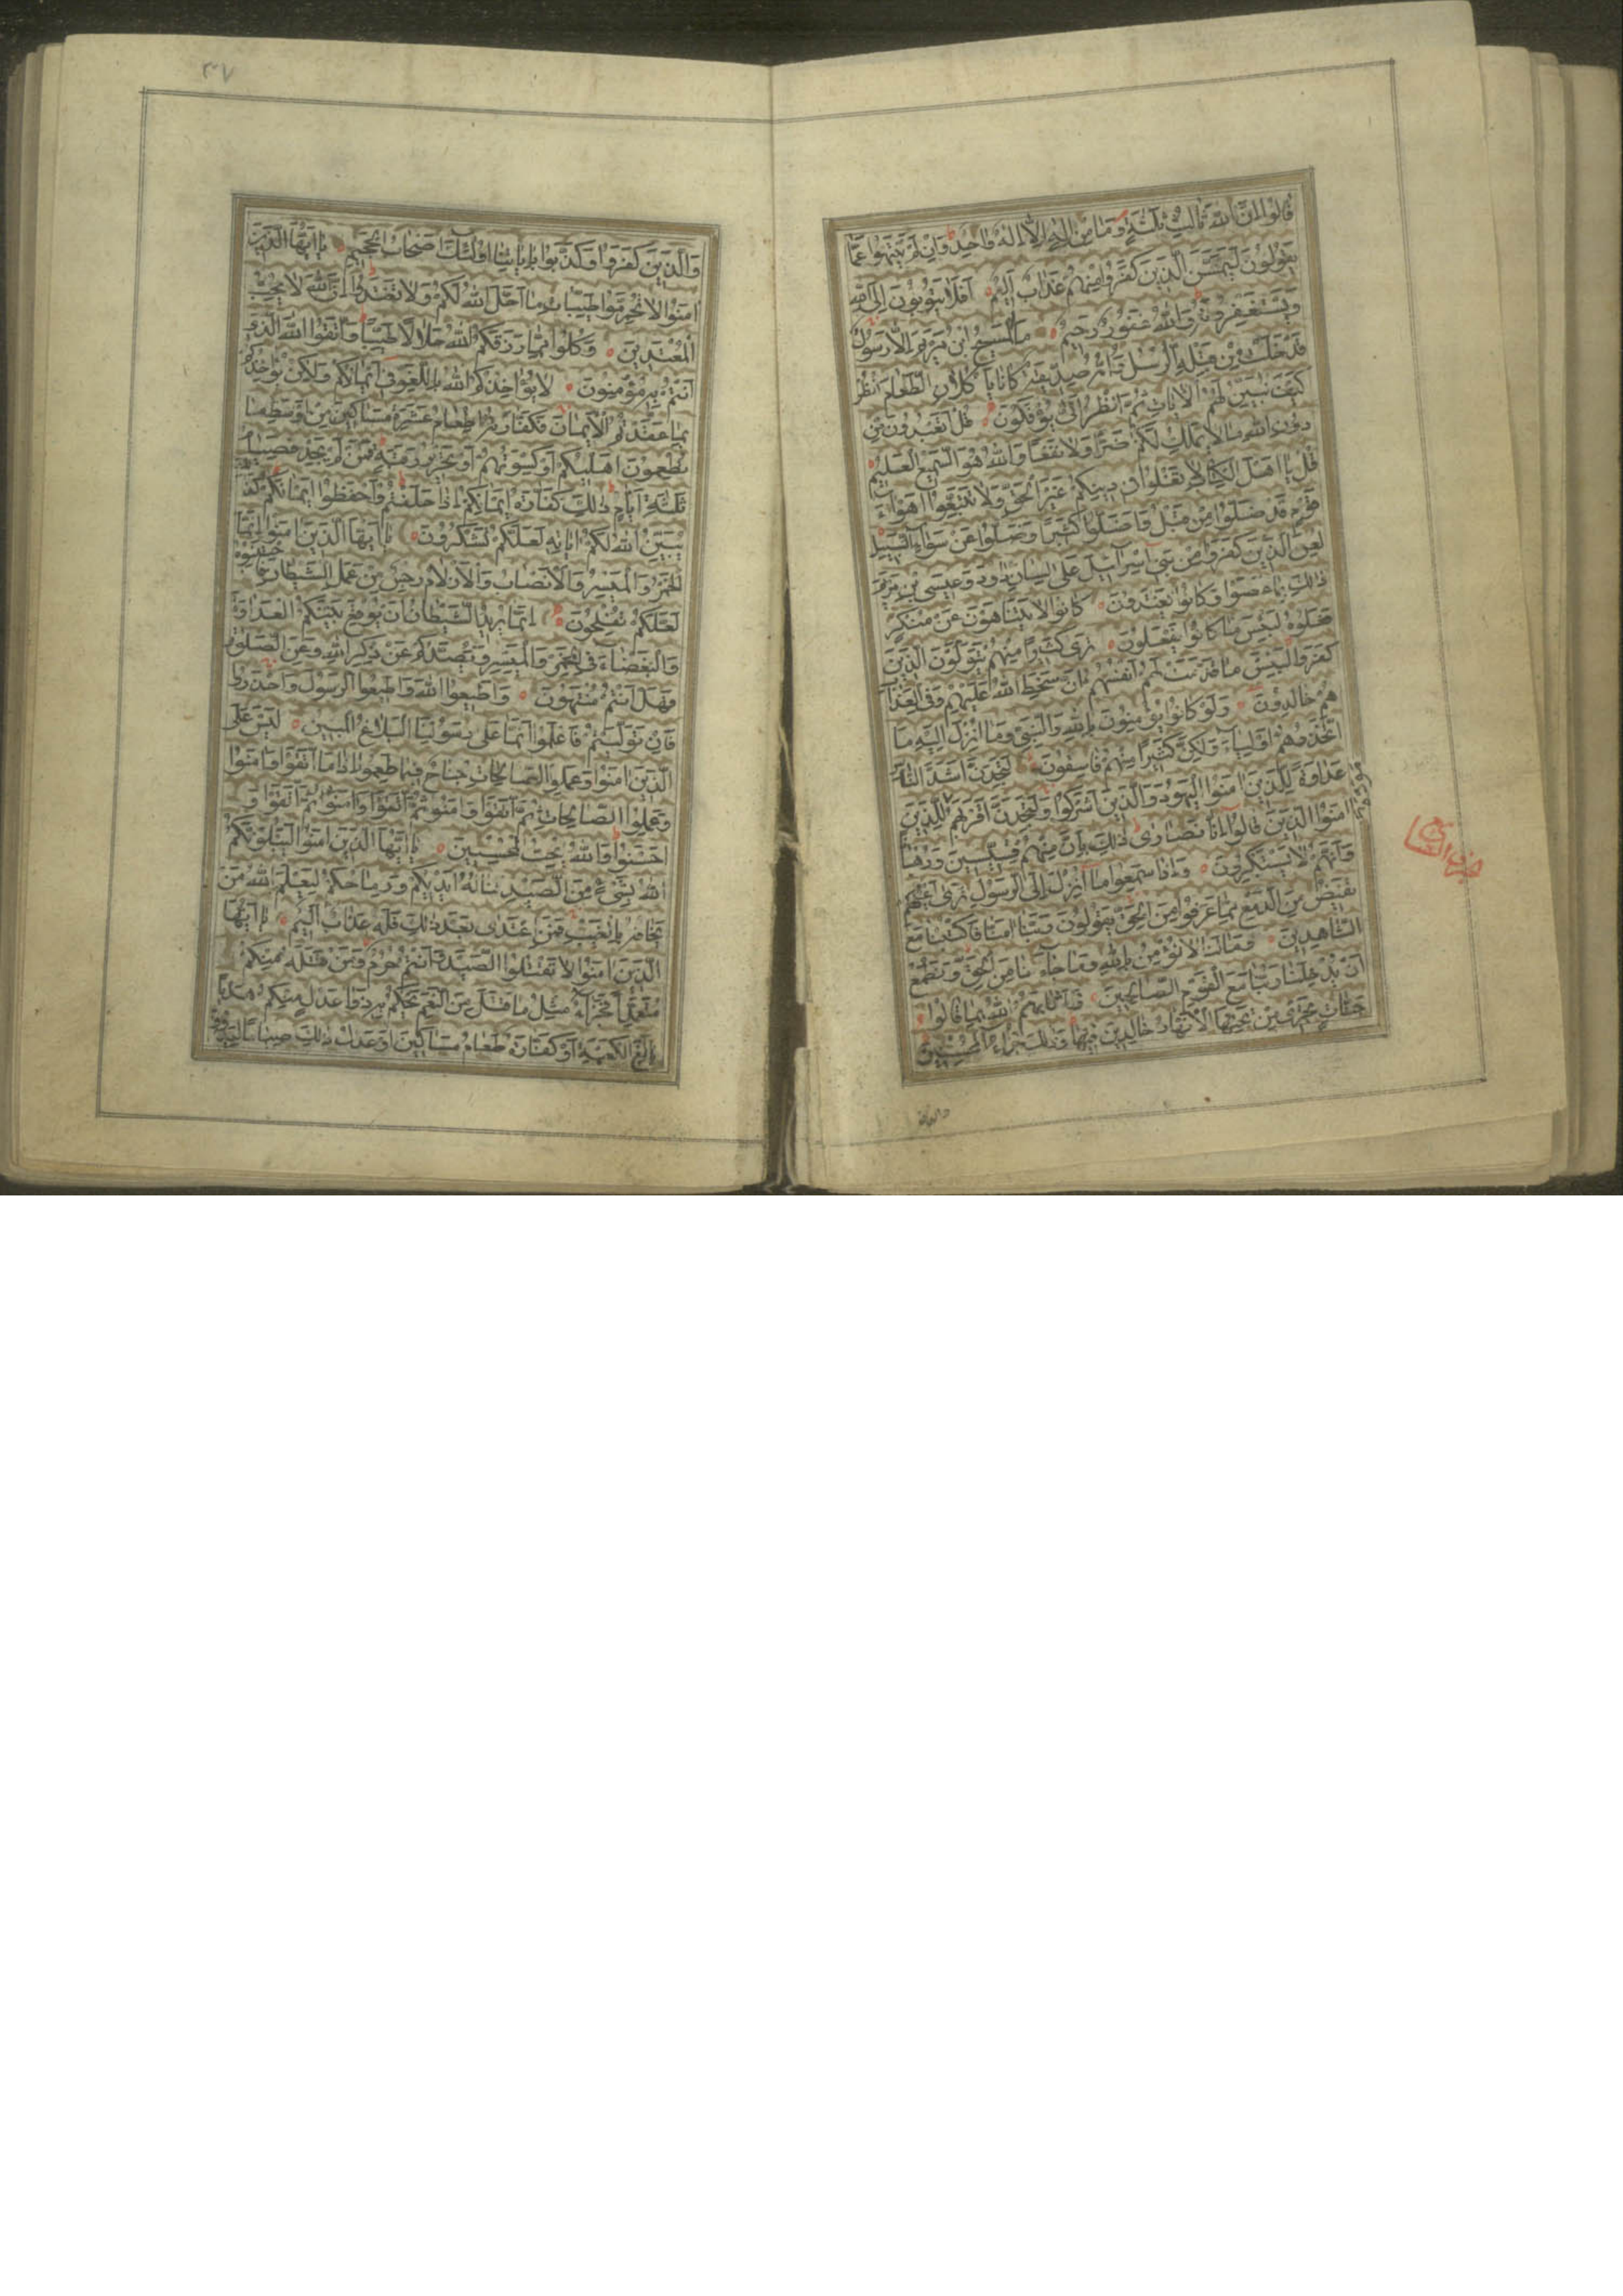 قَالُوا إِنَّ اللهَ ثَالِثُ ثَلٰثَةٍ وَمَا مِنْ إِلٰهٍ إِلَّا إِلٰهٌ وَاحِدٌ وَإِنْ لَمْ يَنْتَهُوا عَمَّا
يَقُولُونَ لَيَمَسَّنَّ الَّذِينَ كَفَرُوا مِنْهُمْ عَذَابٌ أَلِيمٌ أَفَلَا يَتُوبُونَ إِلَى اللهِ
وَيَسْتَغْفِرُونَهُ وَاللهُ غَفُورٌ رَحِيمٌ مَا الْمَسِيحُ ابْنُ مَرْيَمَ إِلَّا رَسُولٌ
قَدْ خَلَتْ مِنْ قَبْلِهِ الرُّسُلُ وَأُمُّهُ صِدِّيقَةٌ كَانَا يَأْكُلَانِ الطَّعَامَ انْظُرْ
كَيْفَ نُبَيِّنُ لَهُمُ الْآيَاتِ ثُمَّ انْظُرْ أَنَّى يُؤْفَكُونَ قُلْ أَتَعْبُدُونَ مِنْ
دُونِ اللهِ مَا لَا يَمْلِكُ لَكُمْ ضَرًّا وَلَا نَفْعًا وَاللهُ هُوَ السَّمِيعُ الْعَلِيمُ
قُلْ يَا أَهْلَ الْكِتَابِ لَا تَغْلُوا فِي دِينِكُمْ غَيْرَ الْحَقِّ وَلَا تَتَّبِعُوا أَهْوَاءَ
قَوْمٍ قَدْ ضَلُّوا مِنْ قَبْلُ وَأَضَلُّوا كَثِيرًا وَضَلُّوا عَنْ سَوَاءِ السَّبِيلِ
لُعِنَ الَّذِينَ كَفَرُوا مِنْ بَنِي إِسْرَائِيلَ عَلَى لِسَانِ دَاوُدَ وَعِيسَى بْنِ مَرْيَمَ
ذٰلِكَ بِمَا عَصَوْا وَكَانُوا يَعْتَدُونَ كَانُوا لَا يَتَنَاهَوْنَ عَنْ مُنْكَرٍ
فَعَلُوهُ لَبِئْسَ مَا كَانُوا يَفْعَلُونَ تَرَى كَثِيرًا مِنْهُمْ يَتَوَلَّوْنَ الَّذِينَ
كَفَرُوا لَبِئْسَ مَا قَدَّمَتْ لَهُمْ أَنْفُسُهُمْ أَنْ سَخِطَ اللهُ عَلَيْهِمْ وَفِي الْعَذَابِ
هُمْ خَالِدُونَ وَلَوْ كَانُوا يُؤْمِنُونَ بِاللهِ وَالنَّبِيِّ وَمَا أُنْزِلَ إِلَيْهِ مَا
اتَّخَذُوهُمْ أَوْلِيَاءَ وَلٰكِنَّ كَثِيرًا مِنْهُمْ فَاسِقُونَ لَتَجِدَنَّ أَشَدَّ النَّاسِ
عَدَاوَةً لِلَّذِينَ آمَنُوا الْيَهُودَ وَالَّذِينَ أَشْرَكُوا وَلَتَجِدَنَّ أَقْرَبَهُمْ مَوَدَّةً لِلَّذِينَ
آمَنُوا الَّذِينَ قَالُوا إِنَّا نَصَارَى ذٰلِكَ بِأَنَّ مِنْهُمْ قِسِّيسِينَ وَرُهْبَانًا
وَأَنَّهُمْ لَا يَسْتَكْبِرُونَ وَإِذَا سَمِعُوا مَا أُنْزِلَ إِلَى الرَّسُولِ تَرَى أَعْيُنَهُمْ
تَفِيضُ مِنَ الدَّمْعِ مِمَّا عَرَفُوا مِنَ الْحَقِّ يَقُولُونَ رَبَّنَا آمَنَّا فَاكْتُبْنَا مَعَ
الشَّاهِدِينَ وَمَا لَنَا لَا نُؤْمِنُ بِاللهِ وَمَا جَاءَنَا مِنَ الْحَقِّ وَنَطْمَعُ
أَنْ يُدْخِلَنَا رَبُّنَا مَعَ الْقَوْمِ الصَّالِحِينَ فَأَثَابَهُمُ اللهُ بِمَا قَالُوا
جَنَّاتٍ تَجْرِي مِنْ تَحْتِهَا الْأَنْهَارُ خَالِدِينَ فِيهَا وَذٰلِكَ جَزَاءُ الْمُحْسِنِينَ
والذين
٣٠٧
وَالَّذِينَ كَفَرُوا وَكَذَّبُوا بِآيَاتِنَا أُولٰئِكَ أَصْحَابُ الْجَحِيمِ يَا أَيُّهَا الَّذِينَ
آمَنُوا لَا تُحَرِّمُوا طَيِّبَاتِ مَا أَحَلَّ اللهُ لَكُمْ وَلَا تَعْتَدُوا إِنَّ اللهَ لَا يُحِبُّ
الْمُعْتَدِينَ وَكُلُوا مِمَّا رَزَقَكُمُ اللهُ حَلَالًا طَيِّبًا وَاتَّقُوا اللهَ الَّذِي
أَنْتُمْ بِهِ مُؤْمِنُونَ لَا يُؤَاخِذُكُمُ اللهُ بِاللَّغْوِ فِي أَيْمَانِكُمْ وَلٰكِنْ يُؤَاخِذُكُمْ
بِمَا عَقَّدْتُمُ الْأَيْمَانَ فَكَفَّارَتُهُ إِطْعَامُ عَشَرَةِ مَسَاكِينَ مِنْ أَوْسَطِ مَا
تُطْعِمُونَ أَهْلِيكُمْ أَوْ كِسْوَتُهُمْ أَوْ تَحْرِيرُ رَقَبَةٍ فَمَنْ لَمْ يَجِدْ فَصِيَامُ
ثَلٰثَةِ أَيَّامٍ ذٰلِكَ كَفَّارَةُ أَيْمَانِكُمْ إِذَا حَلَفْتُمْ وَاحْفَظُوا أَيْمَانَكُمْ كَذٰلِكَ
يُبَيِّنُ اللهُ لَكُمْ آيَاتِهِ لَعَلَّكُمْ تَشْكُرُونَ يَا أَيُّهَا الَّذِينَ آمَنُوا إِنَّمَا
الْخَمْرُ وَالْمَيْسِرُ وَالْأَنْصَابُ وَالْأَزْلَامُ رِجْسٌ مِنْ عَمَلِ الشَّيْطَانِ فَاجْتَنِبُوهُ
لَعَلَّكُمْ تُفْلِحُونَ إِنَّمَا يُرِيدُ الشَّيْطَانُ أَنْ يُوقِعَ بَيْنَكُمُ الْعَدَاوَةَ
وَالْبَغْضَاءَ فِي الْخَمْرِ وَالْمَيْسِرِ وَيَصُدَّكُمْ عَنْ ذِكْرِ اللهِ وَعَنِ الصَّلٰوةِ
فَهَلْ أَنْتُمْ مُنْتَهُونَ وَأَطِيعُوا اللهَ وَأَطِيعُوا الرَّسُولَ وَاحْذَرُوا
فَإِنْ تَوَلَّيْتُمْ فَاعْلَمُوا أَنَّمَا عَلَى رَسُولِنَا الْبَلَاغُ الْمُبِينُ لَيْسَ عَلَى
الَّذِينَ آمَنُوا وَعَمِلُوا الصَّالِحَاتِ جُنَاحٌ فِيمَا طَعِمُوا إِذَا مَا اتَّقَوْا وَآمَنُوا
وَعَمِلُوا الصَّالِحَاتِ ثُمَّ اتَّقَوْا وَآمَنُوا ثُمَّ اتَّقَوْا وَ
أَحْسَنُوا وَاللهُ يُحِبُّ الْمُحْسِنِينَ يَا أَيُّهَا الَّذِينَ آمَنُوا لَيَبْلُوَنَّكُمُ
اللهُ بِشَيْءٍ مِنَ الصَّيْدِ تَنَالُهُ أَيْدِيكُمْ وَرِمَاحُكُمْ لِيَعْلَمَ اللهُ مَنْ
يَخَافُهُ بِالْغَيْبِ فَمَنِ اعْتَدَى بَعْدَ ذٰلِكَ فَلَهُ عَذَابٌ أَلِيمٌ يَا أَيُّهَا
الَّذِينَ آمَنُوا لَا تَقْتُلُوا الصَّيْدَ وَأَنْتُمْ حُرُمٌ وَمَنْ قَتَلَهُ مِنْكُمْ
مُتَعَمِّدًا فَجَزَاءٌ مِثْلُ مَا قَتَلَ مِنَ النَّعَمِ يَحْكُمُ بِهِ ذَوَا عَدْلٍ مِنْكُمْ هَدْيًا
بَالِغَ الْكَعْبَةِ أَوْ كَفَّارَةٌ طَعَامُ مَسَاكِينَ أَوْ عَدْلُ ذٰلِكَ صِيَامًا لِيَذُوقَ